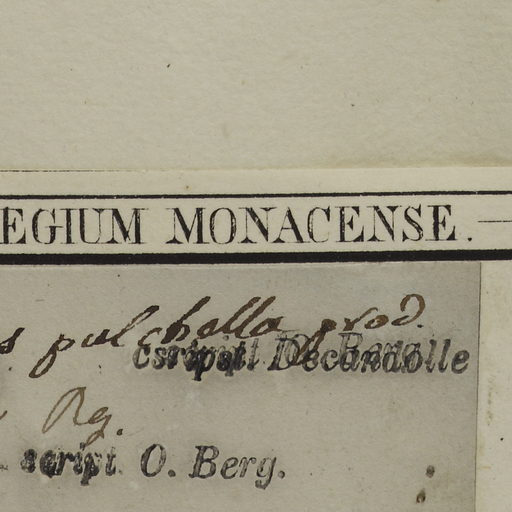 EGIUM MONACENSE.
s pulchella prod.
script. Decandolle
Rg.
script O. Berg.